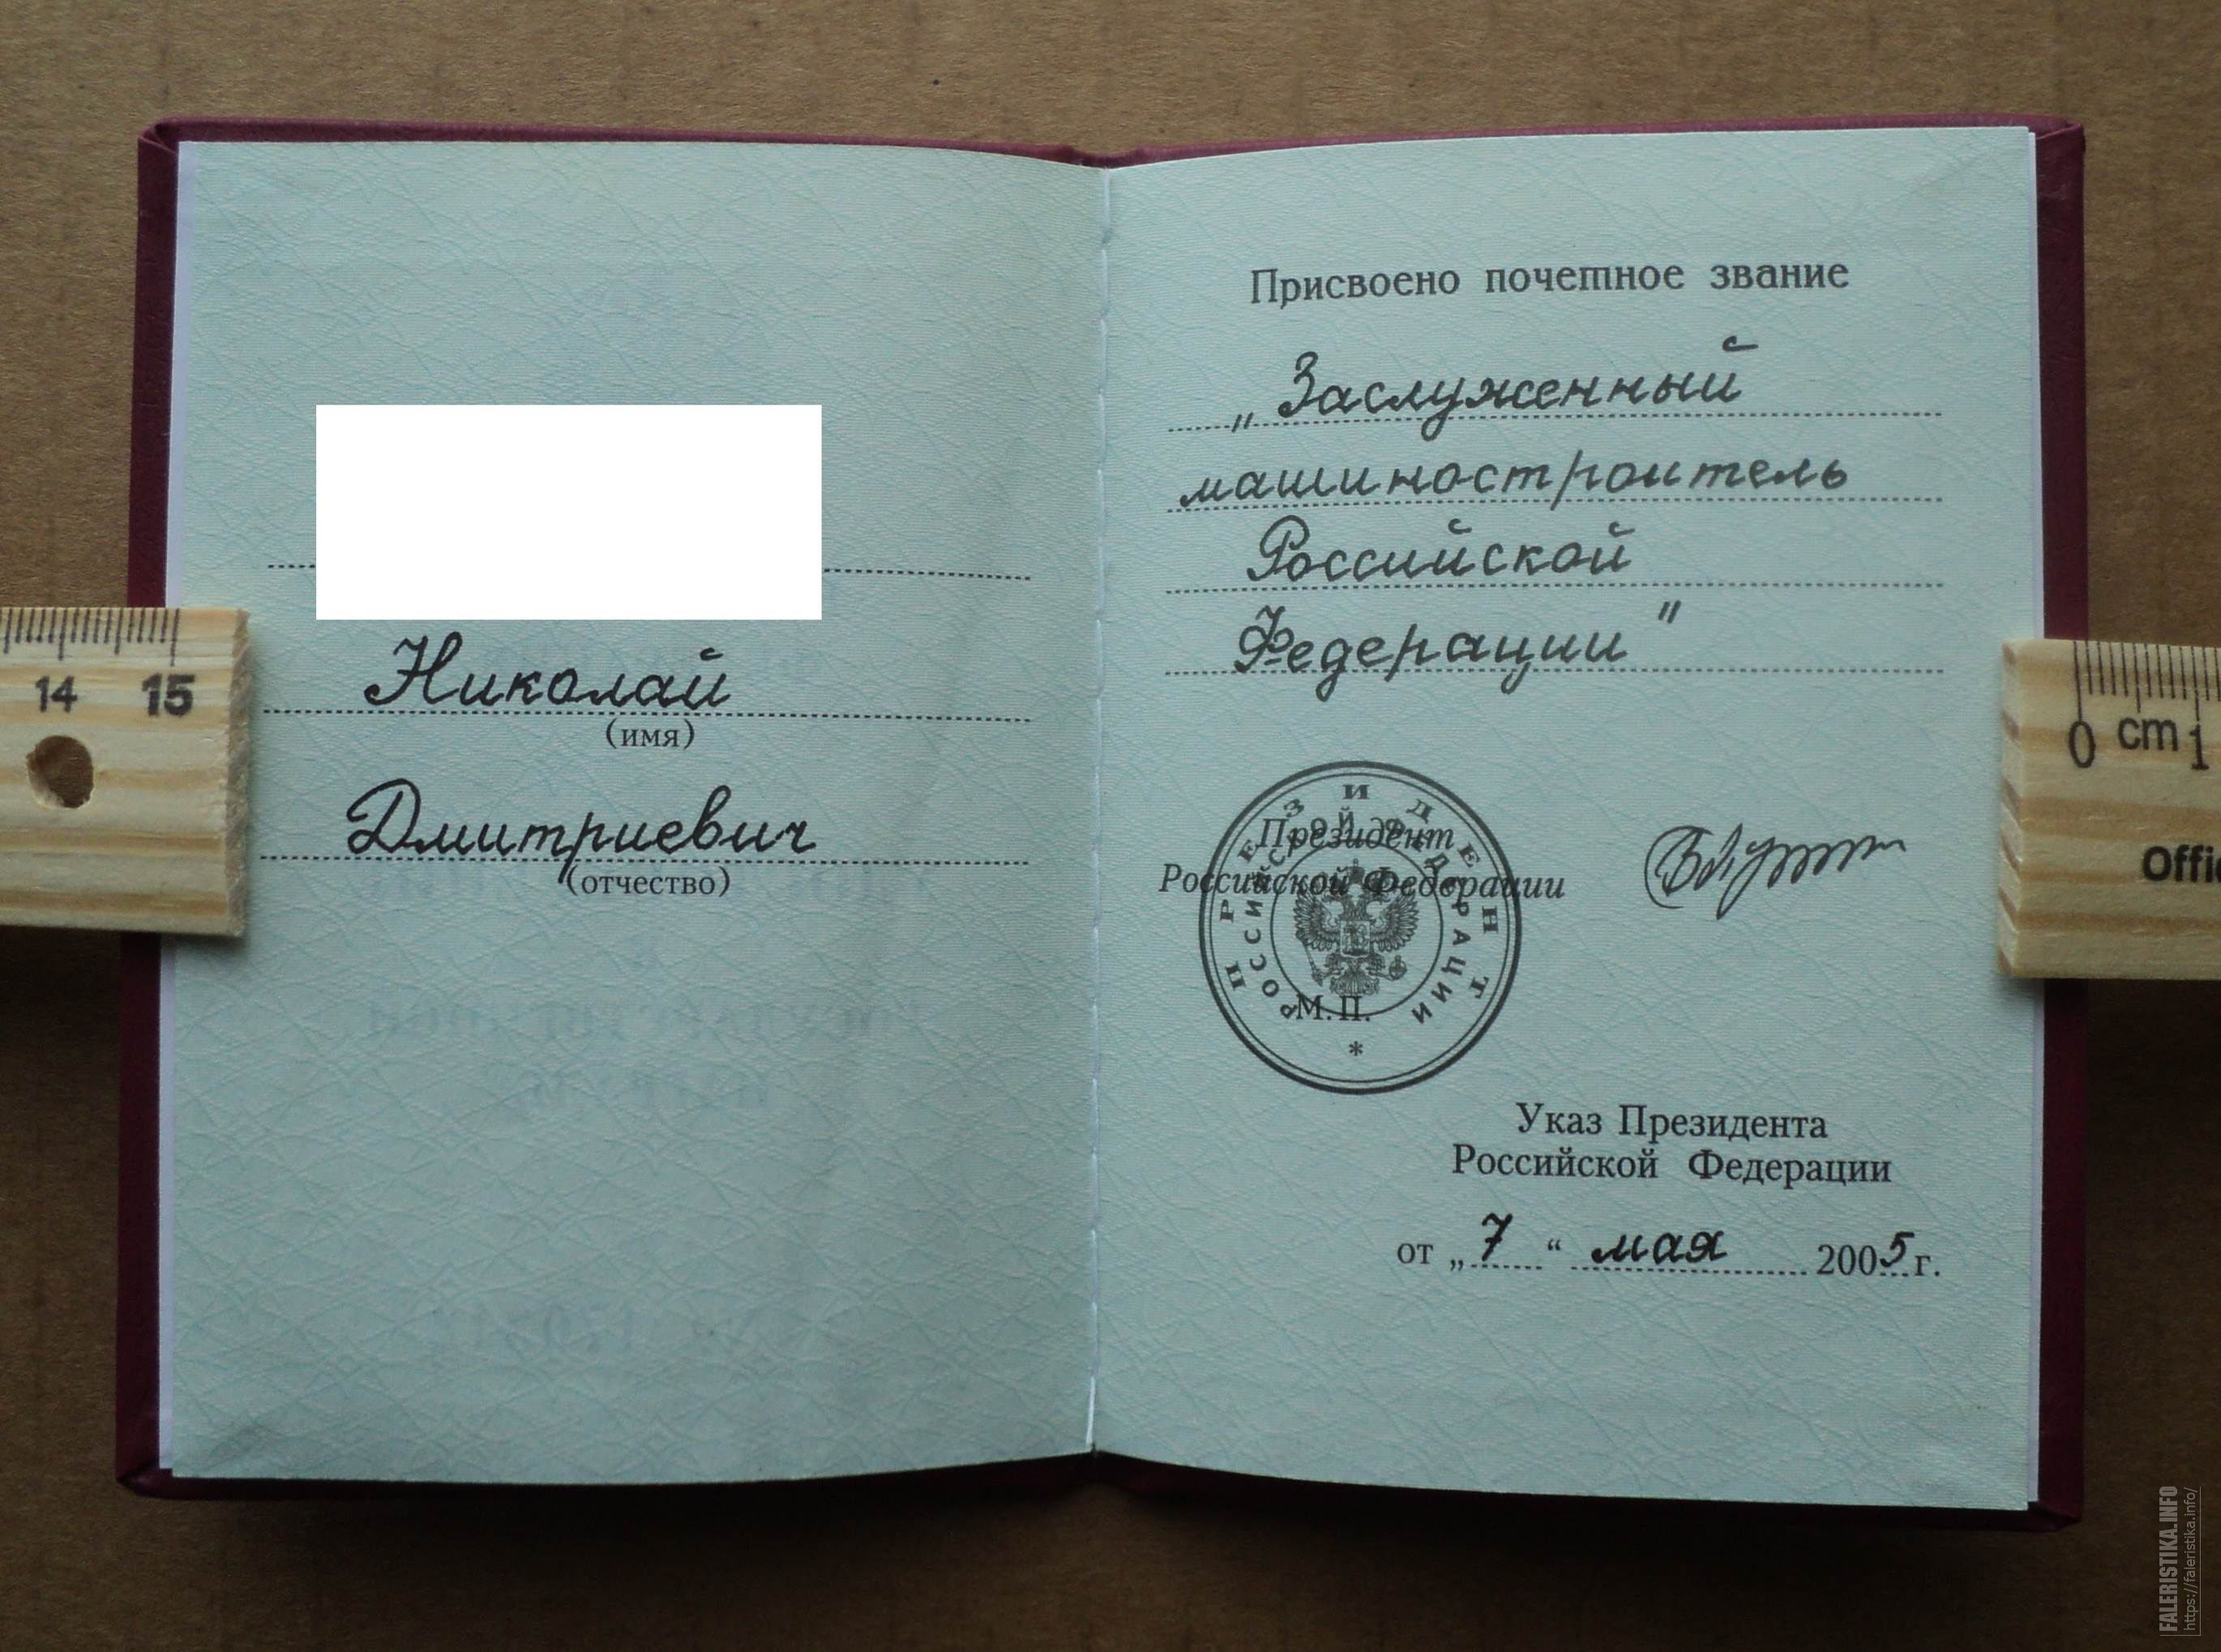 Николай
(имя)
Дмитриевич
(отчество)
Присвоено почетное звание
„Заслуженный
машиностроитель
Российской
Федерации"
Президент
Российской Федерации
ПРЕЗИДЕНТ
РОССИЙСКОЙ ФЕДЕРАЦИИ
*
М.П.
Указ Президента
Российской Федерации
от „7“ мая 2005 г.
14 15
0 cm 1
Offi
FALERISTIKA.INFO
https://faleristika.info/